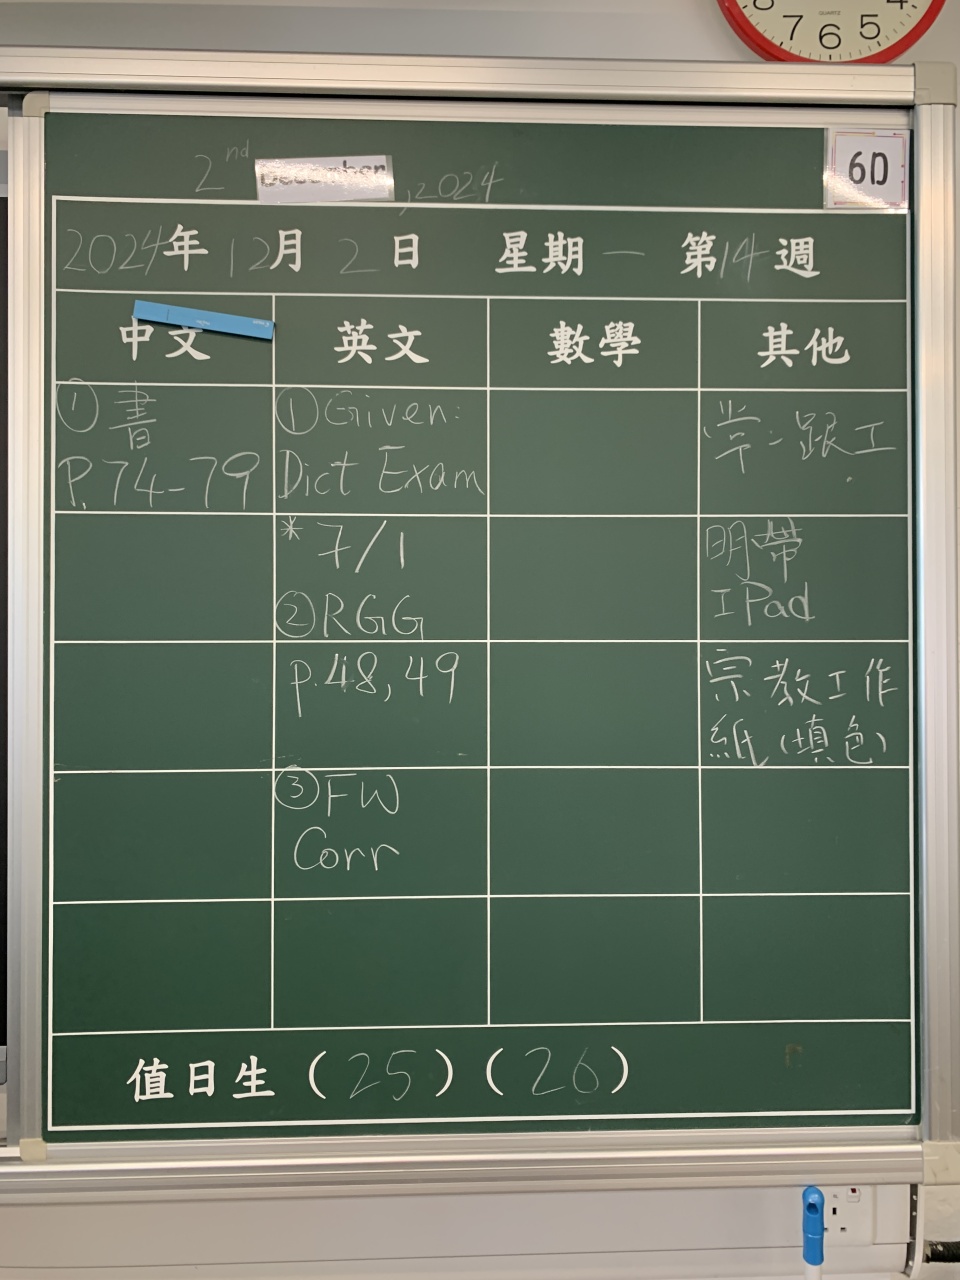 7 6 5
QUARTZ
2nd December, 2024
6D
2024年 12月 2日 星期一 第14週
中文 英文 數學 其他
① 書
P.74-79
① Given:
Dict Exam
* 7/1
② RGG
p.48, 49
③ FW
Corr
常: 跟工
明帶
IPad
宗教工作
紙(填色)
值日生 (25) (26)